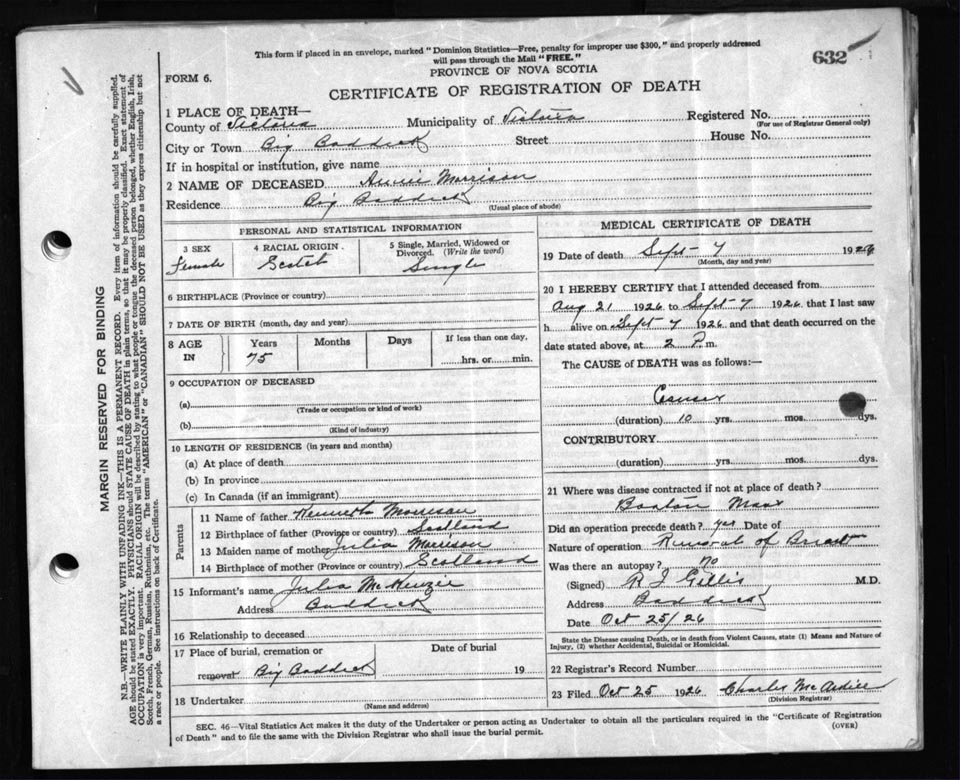 This form if placed in an envelope, marked "Dominion Statistics—Free, penalty for improper use $300," and properly addressed
will pass through the Mail "FREE."
632
PROVINCE OF NOVA SCOTIA
FORM 6.
CERTIFICATE OF REGISTRATION OF DEATH
1 PLACE OF DEATH—
County of Victoria Municipality of Victoria Registered No.
(For use of Registrar General only)
City or Town Big Baddeck Street House No.
If in hospital or institution, give name
2 NAME OF DECEASED Annie Morrison
Residence Big Baddeck
(Usual place of abode)
PERSONAL AND STATISTICAL INFORMATION
3 SEX 4 RACIAL ORIGIN. 5 Single, Married, Widowed or
Divorced. (Write the word)
Female Scotch Single
6 BIRTHPLACE (Province or country)
7 DATE OF BIRTH (month, day and year)
8 AGE IN Years Months Days If less than one day,
75 hrs. or min.
9 OCCUPATION OF DECEASED
(a)
(Trade or occupation or kind of work)
(b)
(Kind of industry)
10 LENGTH OF RESIDENCE (in years and months)
(a) At place of death
(b) In province
(c) In Canada (if an immigrant)
Parents
11 Name of father Morrison
12 Birthplace of father (Province or country) Scotland
13 Maiden name of mother Julia Morrison
14 Birthplace of mother (Province or country) Scotland
15 Informant's name Julia McKenzie
Address Baddeck
16 Relationship to deceased
17 Place of burial, cremation or Date of burial
removal Big Baddeck 19
18 Undertaker
(Name and address)
MEDICAL CERTIFICATE OF DEATH
19 Date of death Sept 7 1926
(Month, day and year)
20 I HEREBY CERTIFY that I attended deceased from
Aug 21 1926 to Sept 7 1926 that I last saw
h alive on Sept 7 1926 and that death occurred on
date stated above, at 2 P.m.
The CAUSE of DEATH was as follows:—
Cancer
(duration) 10 yrs. mos. dys.
CONTRIBUTORY
(duration) yrs. mos. dys.
21 Where was disease contracted if not at place of death?
Boston Mass
Did an operation precede death? yes Date of
Nature of operation Removal of Breast
Was there an autopsy? no
(Signed) R J Gillis M.D.
Address Baddeck
Date Oct 25/26
State the Disease causing Death, or in death from Violent Causes, state (1) Means and Nature of
Injury, (2) whether Accidental, Suicidal or Homicidal.
22 Registrar's Record Number
23 Filed Oct 25 1926 Charles
(Division Registrar)
SEC. 46—Vital Statistics Act makes it the duty of the Undertaker or person acting as Undertaker to obtain all the particulars required in the "Certificate of Registration
of Death" and to file the same with the Division Registrar who shall issue the burial permit.
(OVER)
MARGIN RESERVED FOR BINDING
N.B.—WRITE PLAINLY WITH UNFADING INK—THIS IS A PERMANENT RECORD. Every item of information should be carefully supplied.
AGE should be stated EXACTLY. PHYSICIANS should STATE CAUSE OF DEATH in plain terms, so that it may be properly classified. Exact statement of
OCCUPATION is very important. RACIAL ORIGIN will be described by stating to what people or tongue the deceased person belonged, whether English, Irish,
Scotch, French, German, Russian, Ruthenian, etc. The terms "AMERICAN" or "CANADIAN" SHOULD NOT BE USED as they express citizenship but not
a race or people. See instructions on back of Certificate.